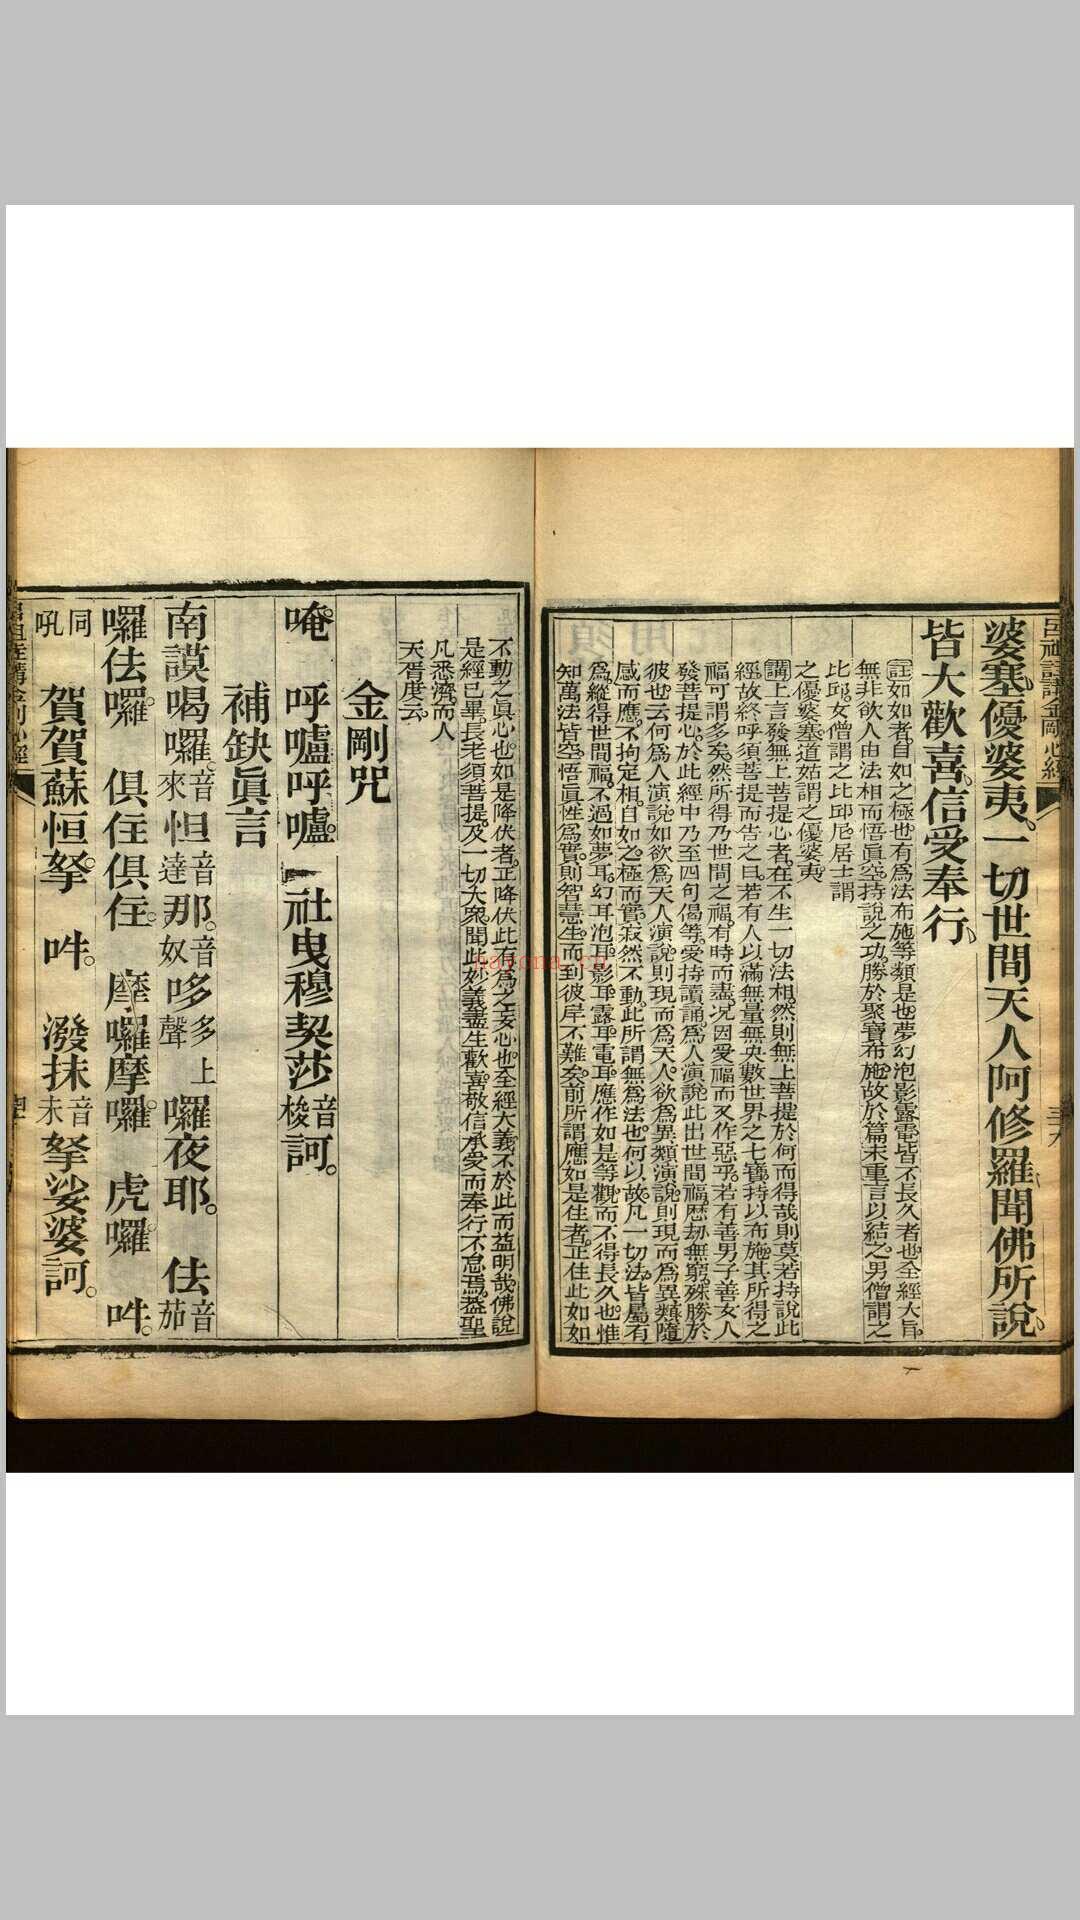 呂祖註講金剛心經
婆塞優婆夷一切世間天人阿修羅聞佛所說
皆大歡喜信受奉行
註如如者自如之極也有為法布施等類是也夢幻泡影露電皆不長久者也全經大旨
無非欲人由法相而悟真空持說之功勝於聚寶布施故於篇末重言以結之男僧謂之
比邱女僧謂之比邱尼居士謂
之優婆塞道姑謂之優婆夷
講上言發無上菩提心者在不生一切法相然則無上菩提於何而得哉則莫若持說此
經故終呼須菩提而告之曰若有人以滿無量無央數世界之七寶持以布施其所得之
福可謂多矣然所得乃世間之福有時而盡況因愛福而又作惡乎若有善男子善女人
發菩提心於此經中乃至四句偈等受持讀誦為人演說此出世間福歷劫無窮殊勝於
彼也云何為人演說如欲為天人演說則現而為天人欲為異類演說則現而為異類隨
感而應不拘定相自如之極而實寂然不動此所謂無為法也何以故凡一切法皆屬有
為縱得世間福不過如夢耳幻耳泡耳影耳露耳電耳應作如是等觀而不得長久也惟
知萬法皆空悟真性為實則智慧生而到彼岸不難矣前所謂應如是住者正住此如如
不動之真心也如是降伏者正降伏此有為之妄心也全經大義不於此而益明哉佛說
是經已畢長老須菩提及一切大眾聞此妙義盡生歡喜敬信承受而奉行不怠焉蓋聖
凡悉濟而人
天胥度云
金剛咒
唵 呼嚧呼嚧 社曳穆契莎音梭訶
補缺真言
南謨喝囉音來怛音達那音奴哆多上聲囉夜耶 佉音茄
囉佉囉 俱住俱住 摩囉摩囉 虎囉 吽
同吼 賀賀蘇怛拏 吽 潑抹音未拏娑婆訶